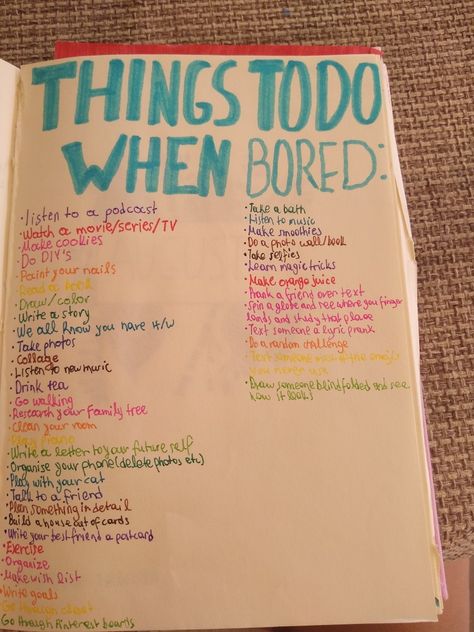 THINGS TO DO
WHEN BORED:
·listen to a podcast
·Watch a movie/series/TV
·Make cookies
·Do DIY's
·Paint your nails
·Read a book
·Draw/color
·Write a story
·We all know you have H/W
·Take photos
·Collage
·Listen to new music
·Drink tea
·Go walking
·Research your family tree
·Clean your room
·Play Piano
·Write a letter to your future self
·Organise your phone(delete photos etc)
·Play with your cat
·Talk to a friend
·Plan something in detail
·Build a house out of cards
·Write your best friend a postcard
·Exercise
·Organize
·Make wish list
·Write goals
·Go through closet
·Go through Pinterest boards
·Take a bath
·Listen to music
·Make smoothies
·Do a photo wall/book
·Take selfies
·Learn magic tricks
·Make orange juice
·Prank a friend over text
·Spin a globe and see where you finger
lands and study that place
·Text someone a lyric prank
·Do a random challenge
·Text someone most of the emojis
you never use
·Draw someone blindfolded and see
how it looks